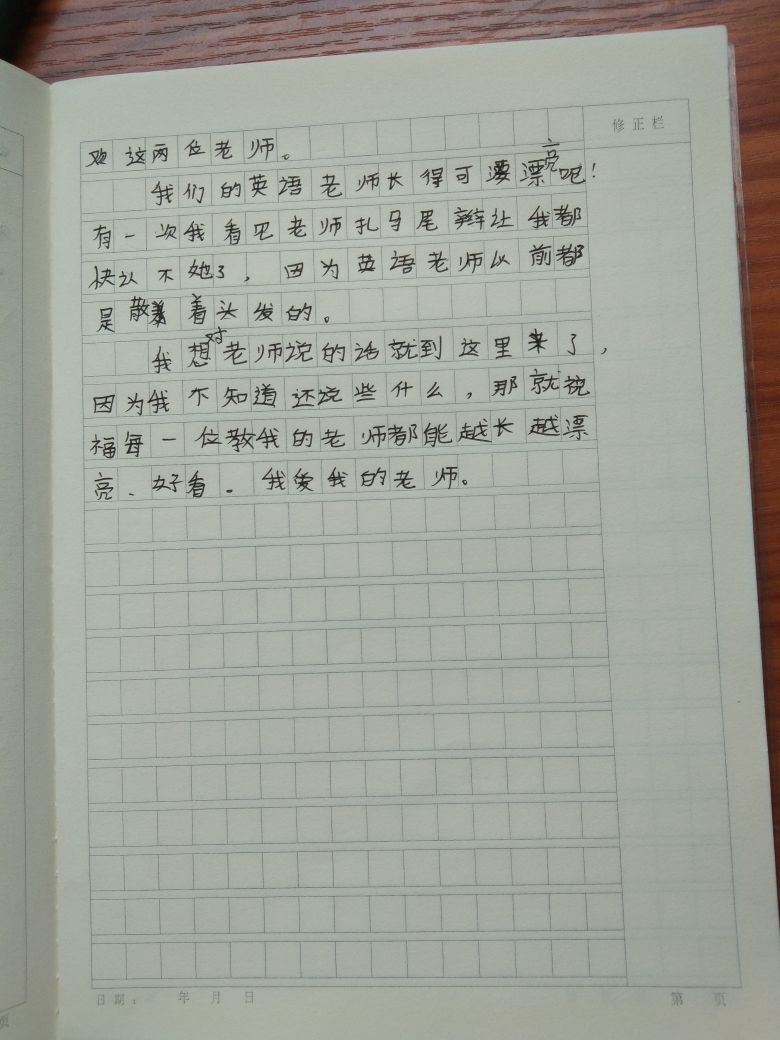 修正栏
欢这两位老师。
我们的英语老师长得可漂亮呢!
有一次我看见老师扎马尾辫让我都
快认不她了,因为英语老师以前都
是散着头发的。
我想对老师说的话就到这里来了,
因为我不知道还说些什么,那就祝
福每一位教我的老师都能越长越漂
亮、好看。我爱我的老师。
日期: 年 月 日
第 页
页